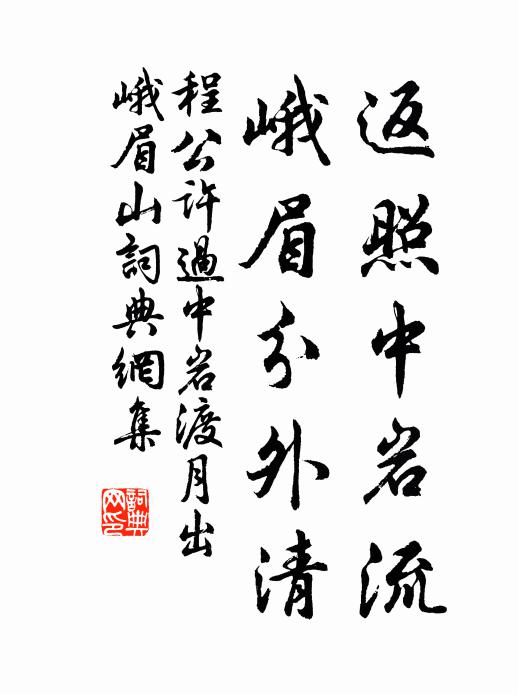 返照中岩流
峨眉分外清
程公許過中岩渡月出
峨眉山詞典網集
詞典網印